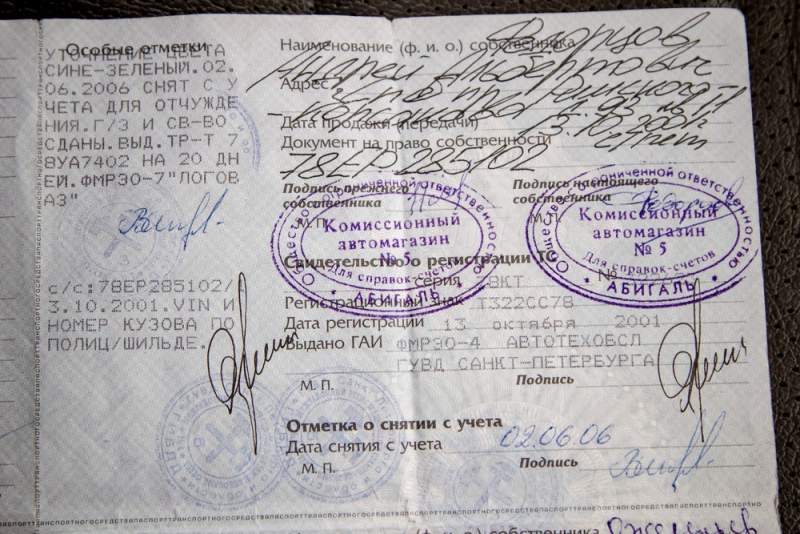 Особые отметки
УТОЧНЕНИЕ ЦВЕТА
СИНЕ-ЗЕЛЕНЫЙ.02.
06.2006 СНЯТ С У
ЧЕТА ДЛЯ ОТЧУЖДЕ
НИЯ.Г/З И СВ-ВО
СДАНЫ.ВЫД.ТР-Т 7
8УА7402 НА 20 ДН
ЕЙ.ФМРЭО-7"ЛОГОВ
АЗ"
с/с:78ЕР285102/1
3.10.2001.VIN И
НОМЕР КУЗОВА ПО
ПОЛИЦ/ШИЛЬДЕ.
Наименование (ф. и. о.) собственника
Андрей Альбертович
Адрес
Дата продажи (передачи) 13.10.2001
Документ на право собственности
78ЕР285102
Подпись прежнего собственника
Подпись настоящего собственника
М. П.
М. П.
Общество с ограниченной ответственностью
Комиссионный
автомагазин
№ 5
Для справок-счетов
* АБИГАЛЬ *
Общество с ограниченной ответственностью
Комиссионный
автомагазин
№ 5
Для справок-счетов
* АБИГАЛЬ *
Свидетельство о регистрации ТС
серия ВКТ №
Регистрационный знак Т322СС78
Дата регистрации 13 октября 2001
Выдано ГАИ ФМРЭО-4 АВТОТЕХОБСЛ
ГУВД САНКТ-ПЕТЕРБУРГА
М. П. Подпись
Отметка о снятии с учета
Дата снятия с учета 02.06.06
М. П. Подпись
(ф. и. о.) собственника